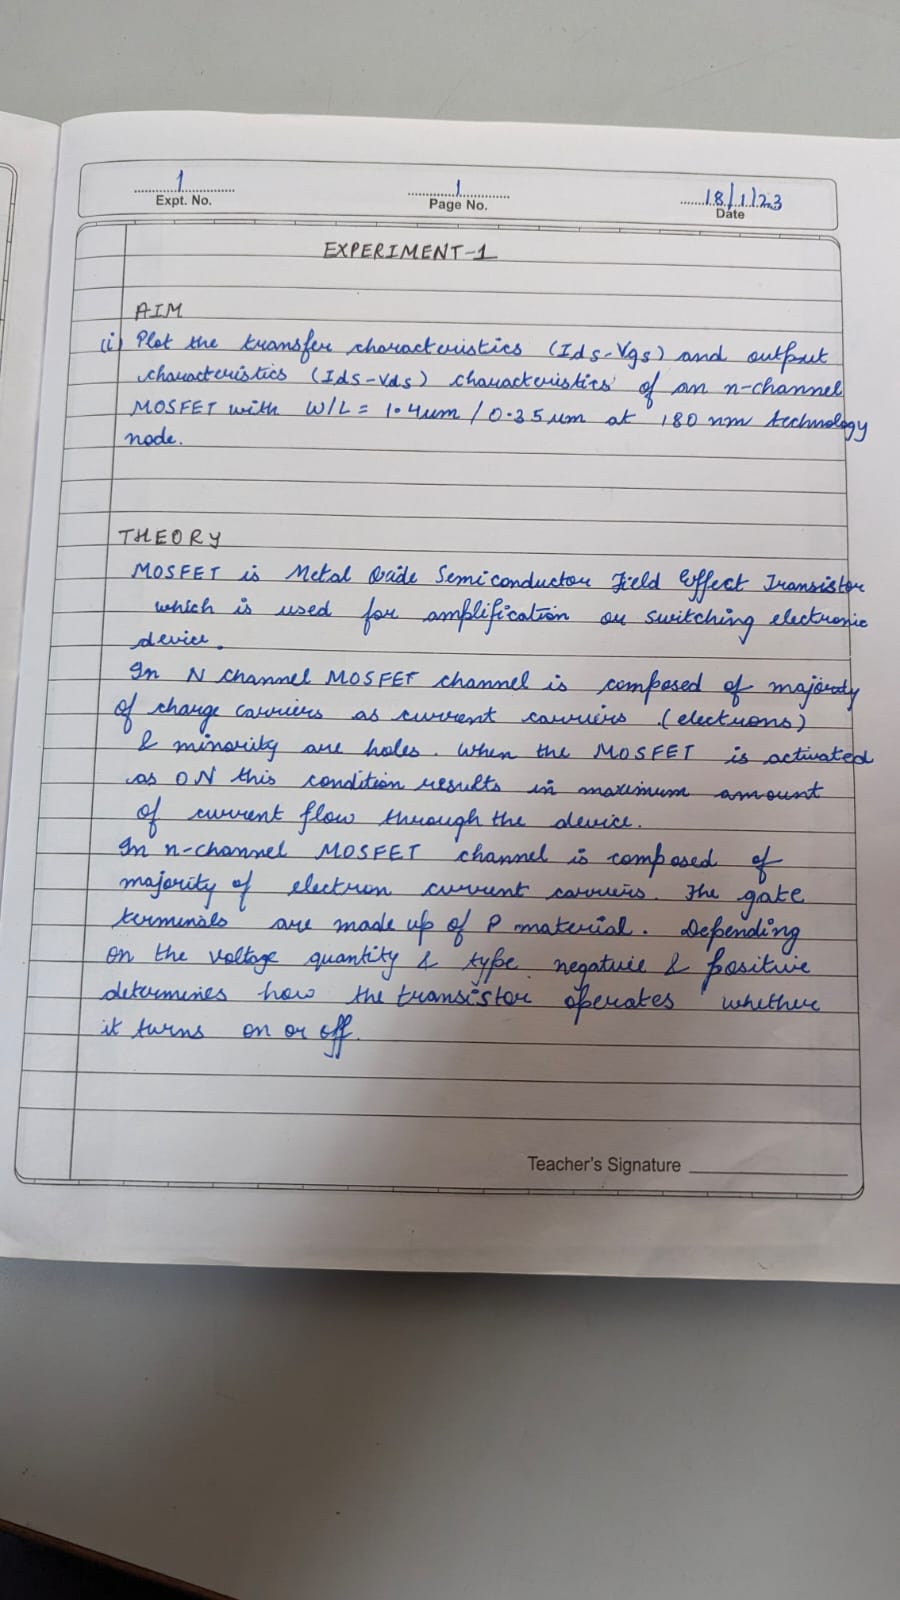 1
Expt. No.
1
Page No.
18/1/23
Date
EXPERIMENT-1
AIM
(i) Plot the transfer characteristics (Ids-Vgs) and output
characteristics (Ids-Vds) characteristics of an n-channel
MOSFET with W/L = 1.4um / 0.35um at 180 nm technology
node.
THEORY
MOSFET is Metal Oxide Semiconductor Field Effect Transistor
which is used for amplification or switching electronic
device.
In N channel MOSFET channel is composed of majority
of charge carriers as current carriers . (electrons)
& minority are holes. When the MOSFET is activated
as ON this condition results in maximum amount
of current flow through the device.
In n-channel MOSFET channel is composed of
majority of electron current carriers. The gate
terminals are made up of P material. Depending
on the voltage quantity & type negative & positive
determines how the transistor operates whether
it turns on or off.
Teacher's Signature